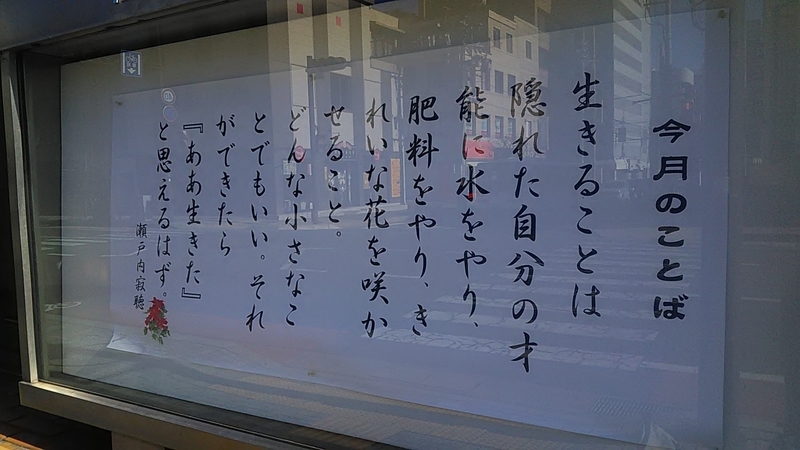 今月のことば
生きることは
隠れた自分の才
能に水をやり、
肥料をやり、き
れいな花を咲か
せること。
どんな小さなこ
とでもいい。それ
ができたら
『ああ生きた』
と思えるはず。
瀬戸内寂聴